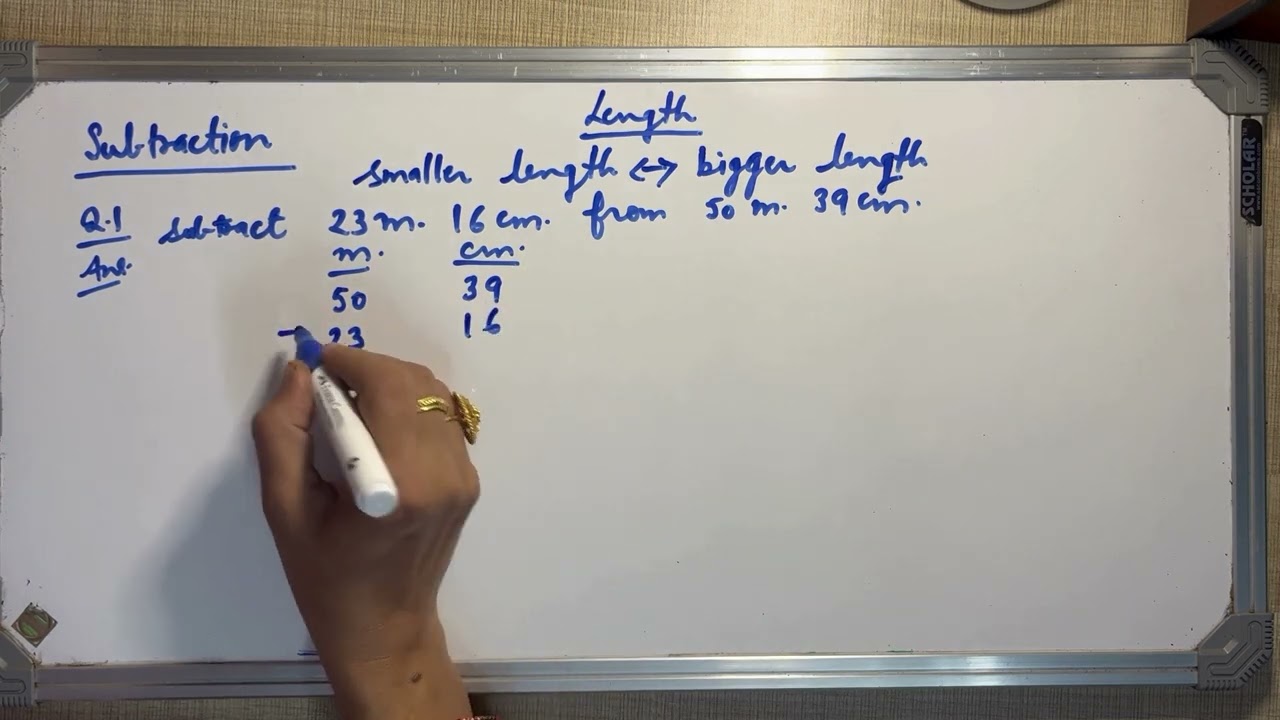 Length
Subtraction
smaller length ↔ bigger length
Q.1 subtract 23 m. 16 cm. from 50 m. 39 cm.
Ans. m. cm.
50 39
- 23 16
SCHOLAR™